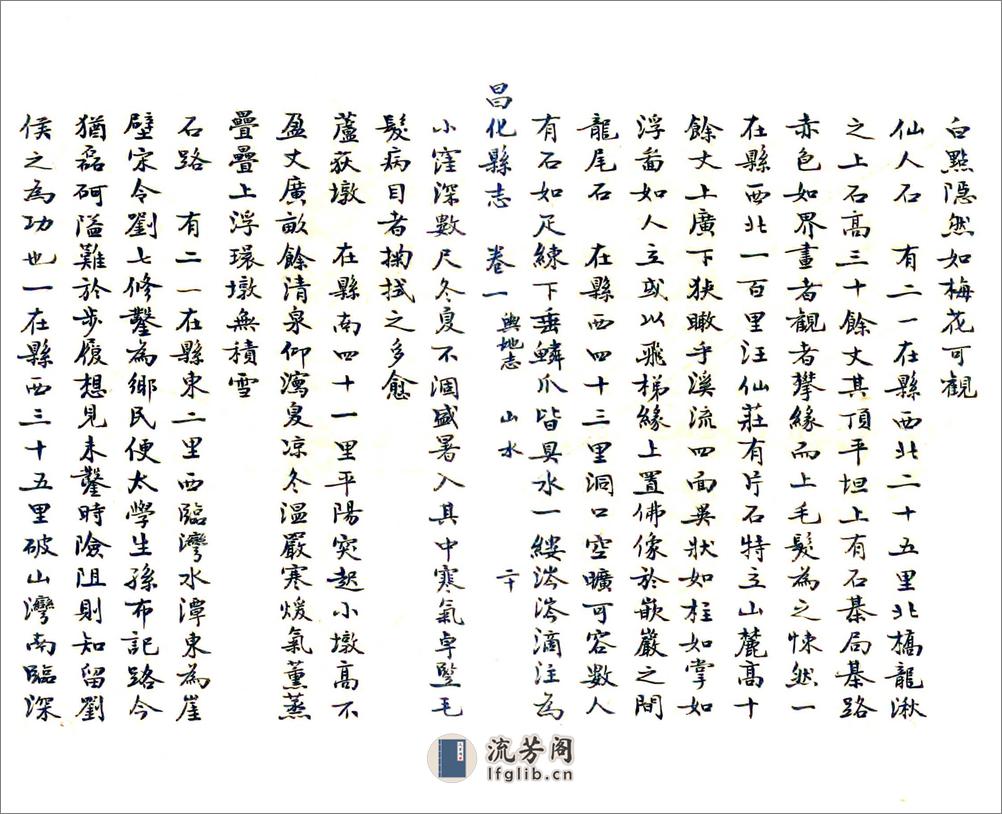 白點隱然如梅花可觀
仙人石　有二一在縣西北二十五里北橋龍湫
之上石高三十餘丈其頂平坦上有石棊局棊路
赤色如界畫者觀者攀緣而上毛髮為之悚然一
在縣西北一百里汪仙莊有片石特立山麓高十
餘丈上廣下狹瞰乎溪流四面異狀如柱如掌如
浮圖如人立或以飛梯緣上置佛像於嵌巖之間
龍尾石　在縣西四十三里洞口空曠可容數人
有石如疋練下垂鱗爪皆具水一縷涔涔滴注為
昌化縣志　卷一　輿地志　山水　二十
小窪深數尺冬夏不涸盛暑入其中寒氣卓豎毛
髮病目者掬拭之多愈
蘆荻墩　在縣南四十一里平陽突起小墩高不
盈丈廣畝餘清泉仰瀉夏凉冬溫嚴寒煖氣薰蒸
疊疊上浮環墩無積雪
石路　有二一在縣東二里西臨灣水潭東為崖
壁宋令劉七修鑿為鄉民便太學生孫布記路今
猶磊砢隘難於步履想見未鑿時險阻則知留劉
侯之為功也一在縣西三十五里破山灣南臨深
流芳阁
lfglib.cn